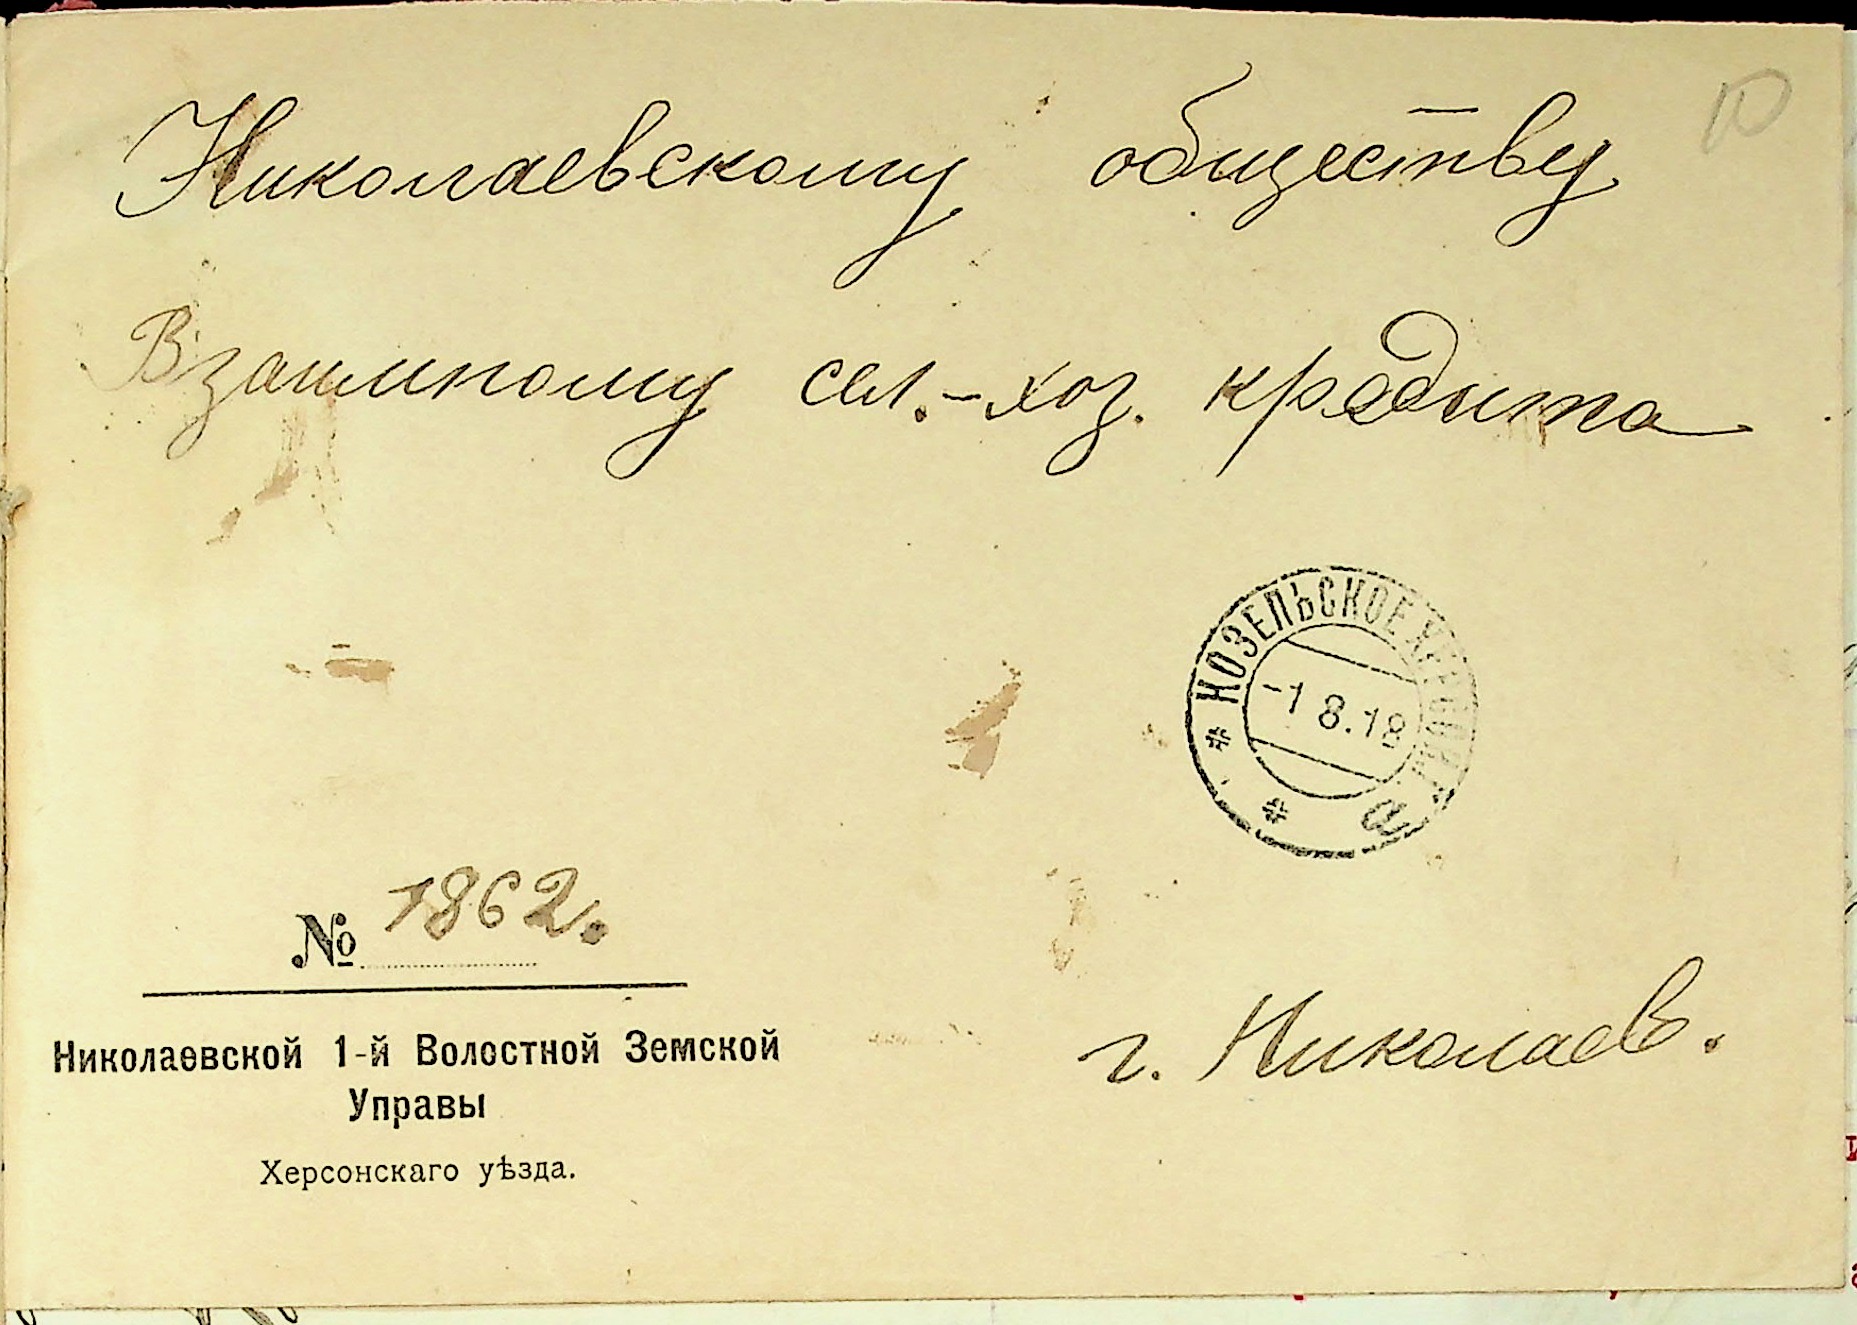 Николаевскому обществу
Взаимному сел.-хоз. кредита
КОЗЕЛЬСКОЕ ХЕРСОН. Г.
-1 8.18
№ 1862.
г. Николаев.
Николаевской 1-й Волостной Земской
Управы
Херсонскаго уѣзда.